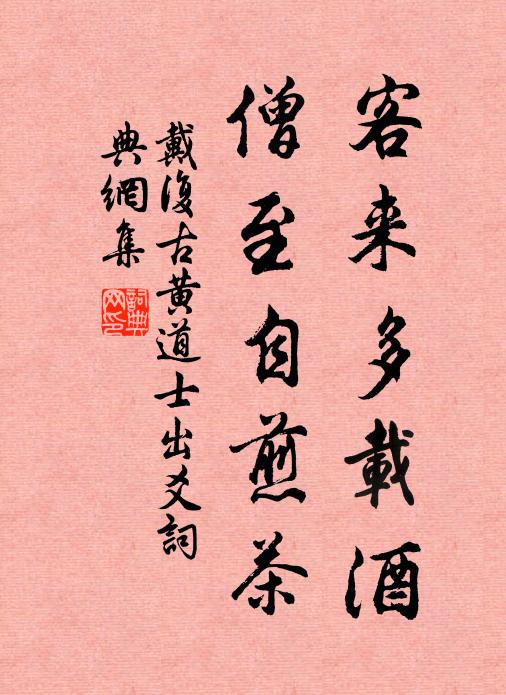 客来多載酒
僧至自煎茶
戴復古黄道士出爻詞
典網集
詞典
网印